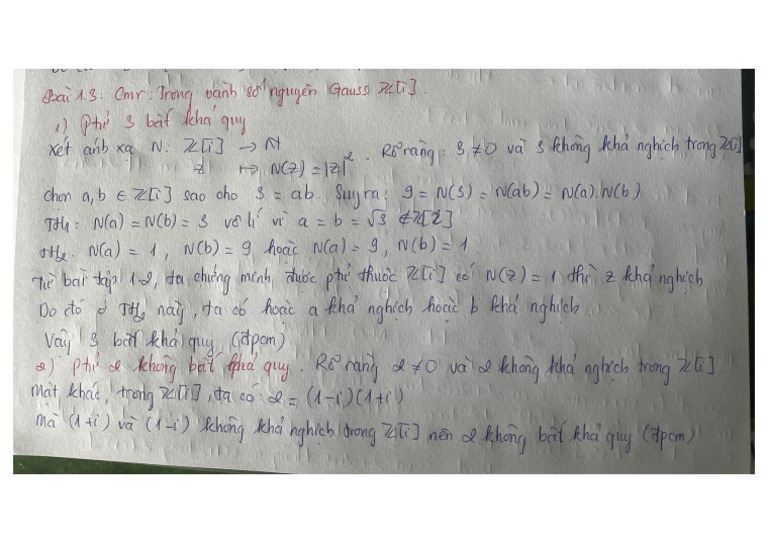 Bài 1.3: Cmr: Trong vành số nguyên Gauss ℤ[i].
1) Phtử 3 bất khả quy
Xét ánh xạ N: ℤ[i] → ℕ
z ↦ N(z) = |z|². Rõ ràng: 3 ≠ 0 và 3 không khả nghịch trong ℤ[i]
chọn a, b ∈ ℤ[i] sao cho 3 = ab. Suy ra: 9 = N(3) = N(ab) = N(a).N(b)
TH₁: N(a) = N(b) = 3 vô lí vì a = b = √3 ∉ ℤ[i]
TH₂: N(a) = 1, N(b) = 9 hoặc N(a) = 9, N(b) = 1.
Từ bài tập 1.2, ta chứng minh được phtử thuộc ℤ[i] có N(z) = 1 thì z khả nghịch
Do đó ở TH₂ này, ta có hoặc a khả nghịch hoặc b khả nghịch.
Vậy 3 bất khả quy (đpcm)
2) Phtử 2 không bất khả quy. Rõ ràng 2 ≠ 0 và 2 không khả nghịch trong ℤ[i]
Mặt khác, trong ℤ[i], ta có: 2 = (1-i)(1+i)
Mà (1+i) và (1-i) không khả nghịch trong ℤ[i] nên 2 không bất khả quy (đpcm)